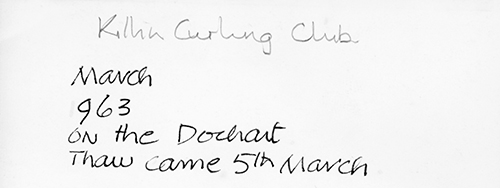 Killin Curling Club
March
963
on the Dochart
Thaw came 5th March